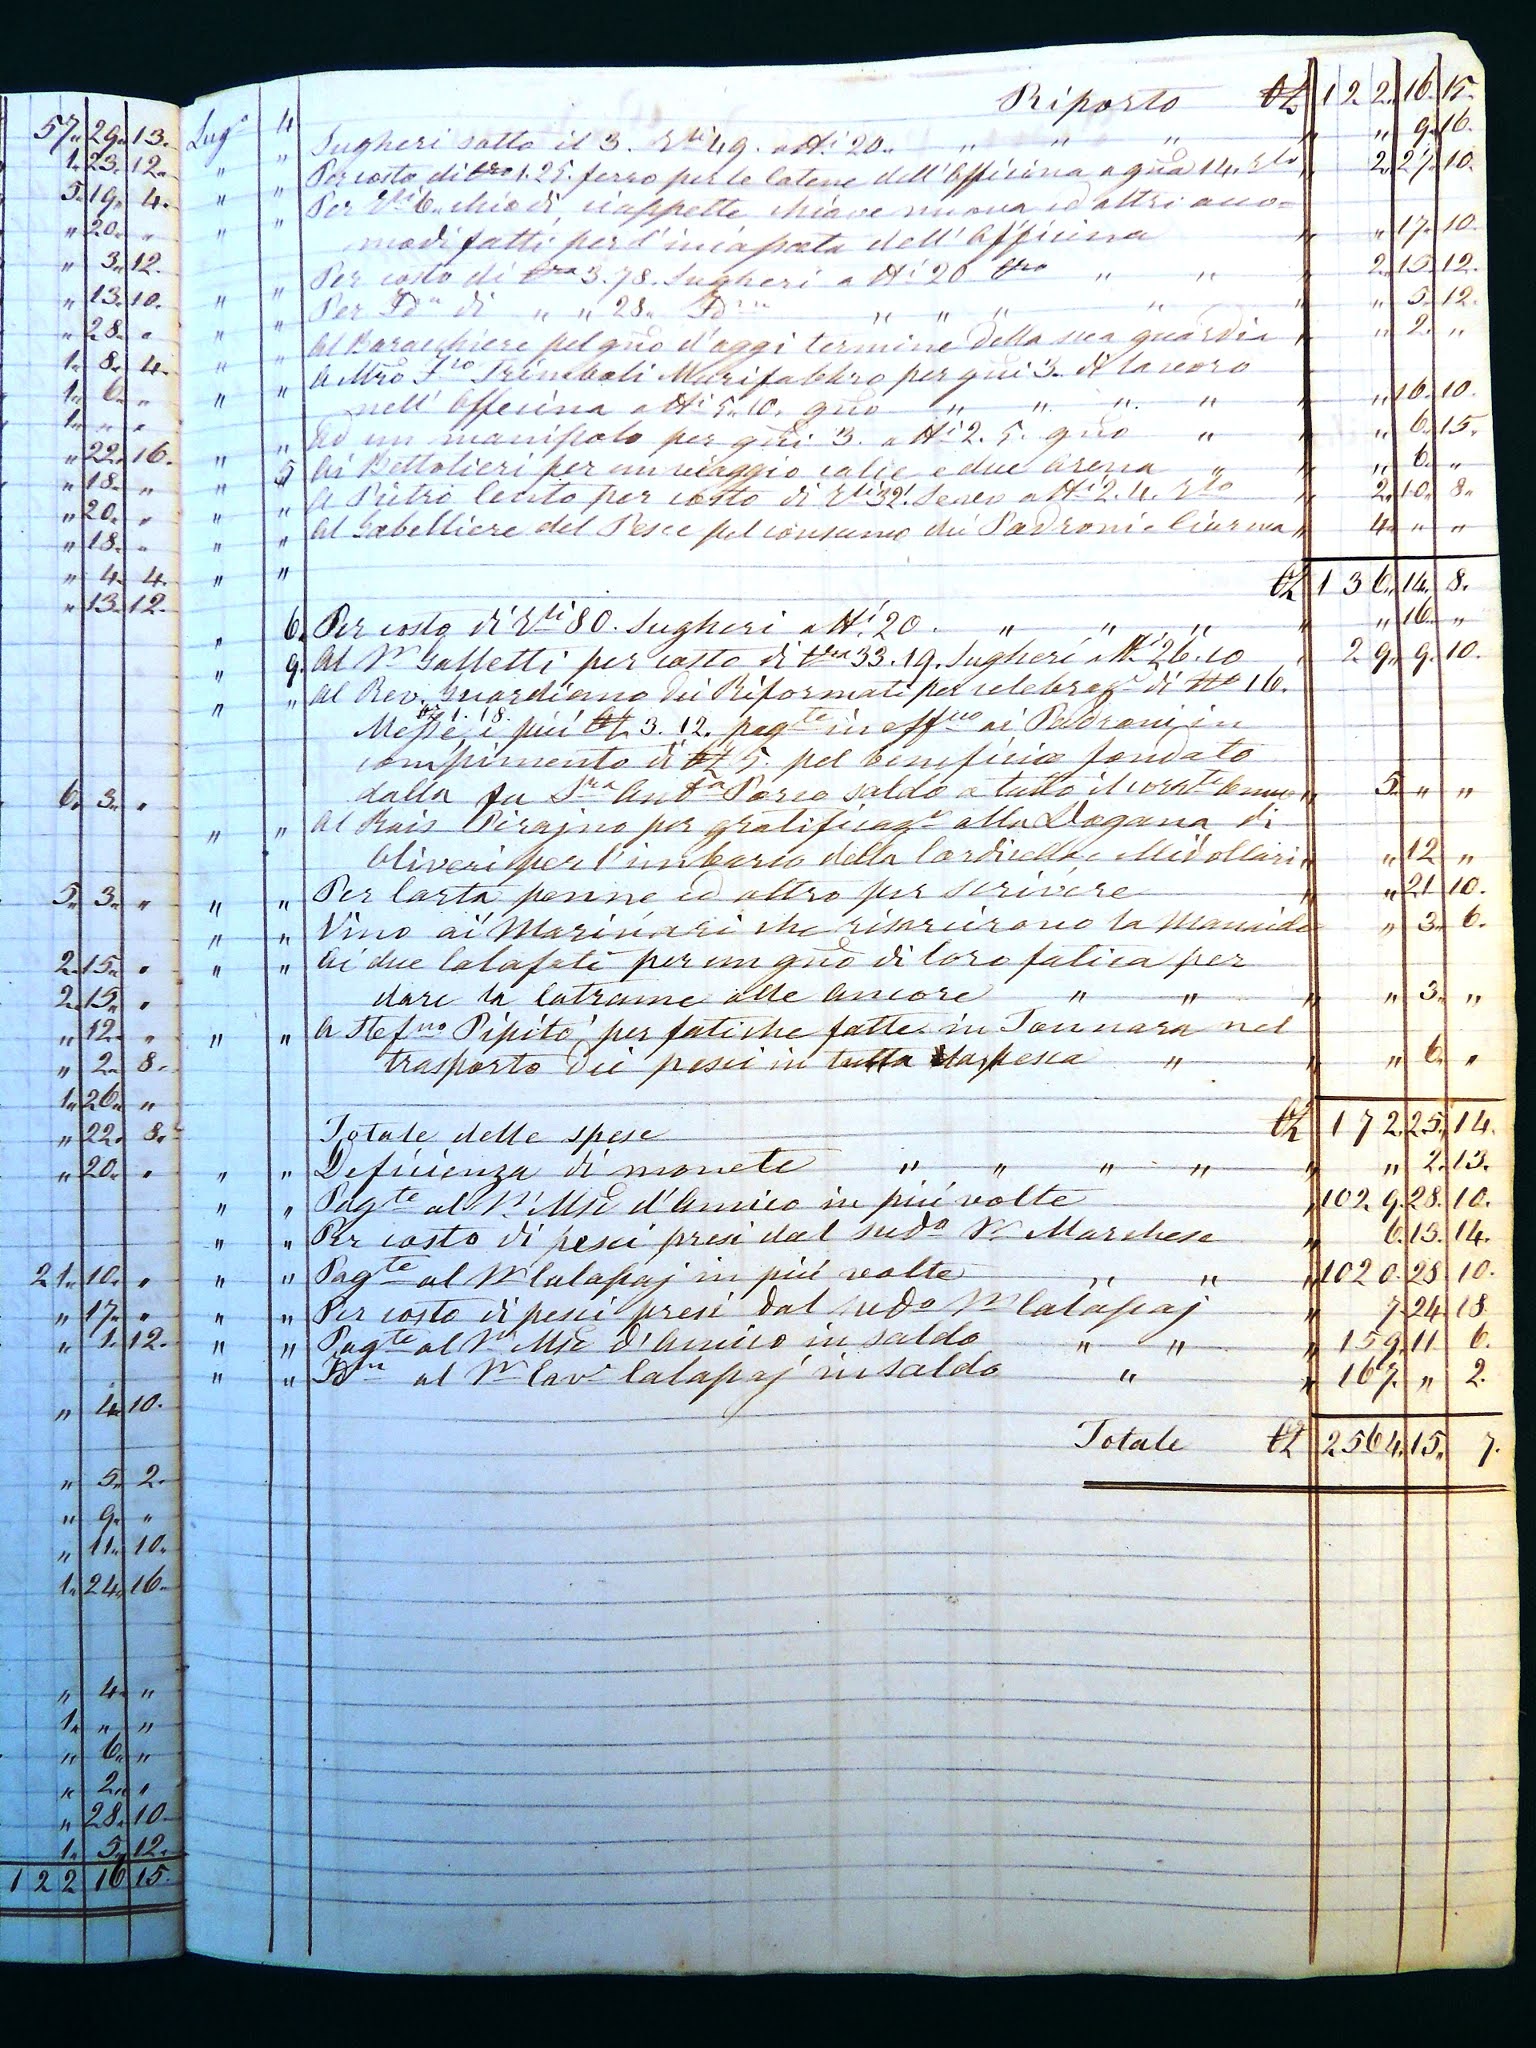 57. 29. 13.
1. 23. 12.
5. 19. 4.
" 20. "
" 3. 12.
" 13. 10.
" 28. "
1. 8. 4.
1. 6. "
1. " "
" 22. 16.
" 18. "
" 20. "
" 18. "
" 4. 4.
" 13. 12.
6. 3. "
5. 3. "
2. 15. "
2. 15. "
" 12. "
" 2. 8.
1. 26. "
" 22. 8.
" 20. "
21. 10. "
" 17. "
" 1. 12.
" 4. 10.
" 5. 2.
" 9. "
" 11. 10.
1. 24. 16.
" 4. "
1. " "
" 6. "
" 2. "
" 28. 10.
1. 5. 12.
122 16 15.
Riporto 122. 16. 15.
Lug° 4 Sugheri sotto il 3. 49. a 20. " " " " " 9. 16.
" " Per costo di 1.25. ferro per le catene dell'Officina a 14. 2. 27. 10.
" " Per 6. chiodi, ciappette chiave nuova ed altri acco=
modi fatti per l' dell'Officina " " 17. 10.
" " Per costo di 3.78. Sugheri a 20 " " 2. 15. 12.
" " Per Idm di " " 28. Idm " " " " " " 5. 12.
" " Al Baracchiere pel gno d'oggi termine della sua guardia " " 2. "
" " A Mro Trimboli Murifabbro per gni 3. di lavoro
nell'Officina a 5.10. gno " " " " " " 16. 10.
" " Ad un manipolo per gni 3. a 2. 5. gno " " " 6. 15.
" 5 Ai Bettolieri per un viaggio calce e due arena " " " 6. "
" " A Pietro Cento per costo di 32. a 2. 4. 2. 10. 8.
" " Al Gabelliere del Pesce pel consumo dei Padroni e Ciurma " 4. " "
" " 136. 14. 8.
" 6. Per costo di 80. Sugheri a 20. " " " " " 16. "
" 9. Al Sr Galletti per costo di 33.19. Sugheri a 26.10 " 29. 9. 10.
" " Al Rev. Guardiano dei Riformati per celebraze di No 16.
Messe, 1. 18. e più 3. 12. pagte in ai Padroni, in
compimento di 5. pel beneficio fondato
dalla fu Sra Porco saldo a tutto il corrte anno " 5. " "
" " Al Rais Pirajno per gratificaze alla Dogana di
Oliveri per l'imbarco della Cordicella e Midollari " " 12 "
" " Per Carta penne ed altro per scrivere " " 21 10.
" " Vino ai Marinari che la " 3. 6.
" " Ai due Calafati per un gno di loro fatica per
dare la Catrame alle Ancore " " " " 3. "
" " A Stefno Pipitò per fatiche fatte in Tonnara nel
trasporto dei pesci in tutta la pesca " " " 6. "
Totale delle spese 172. 25. 14.
" " Deficienza di monete " " " " " " 2. 13.
" " Pagte al Sr Mse d'Amico in più volte " 1029. 28. 10.
" " Per costo di pesci presi dal sudo Sr Marchese " 6. 13. 14.
" " Pagte al Sr Calapaj in più volte " " " 1020. 28 10.
" " Per costo di pesci presi dal sudo Sr Calapaj " 7. 24. 18.
" " Pagte al Sr Mse d'Amico in saldo " " " 159. 11 6.
" " Idm al Sr Cavr Calapaj in saldo " " 167. " 2.
Totale 2564. 15. 7.